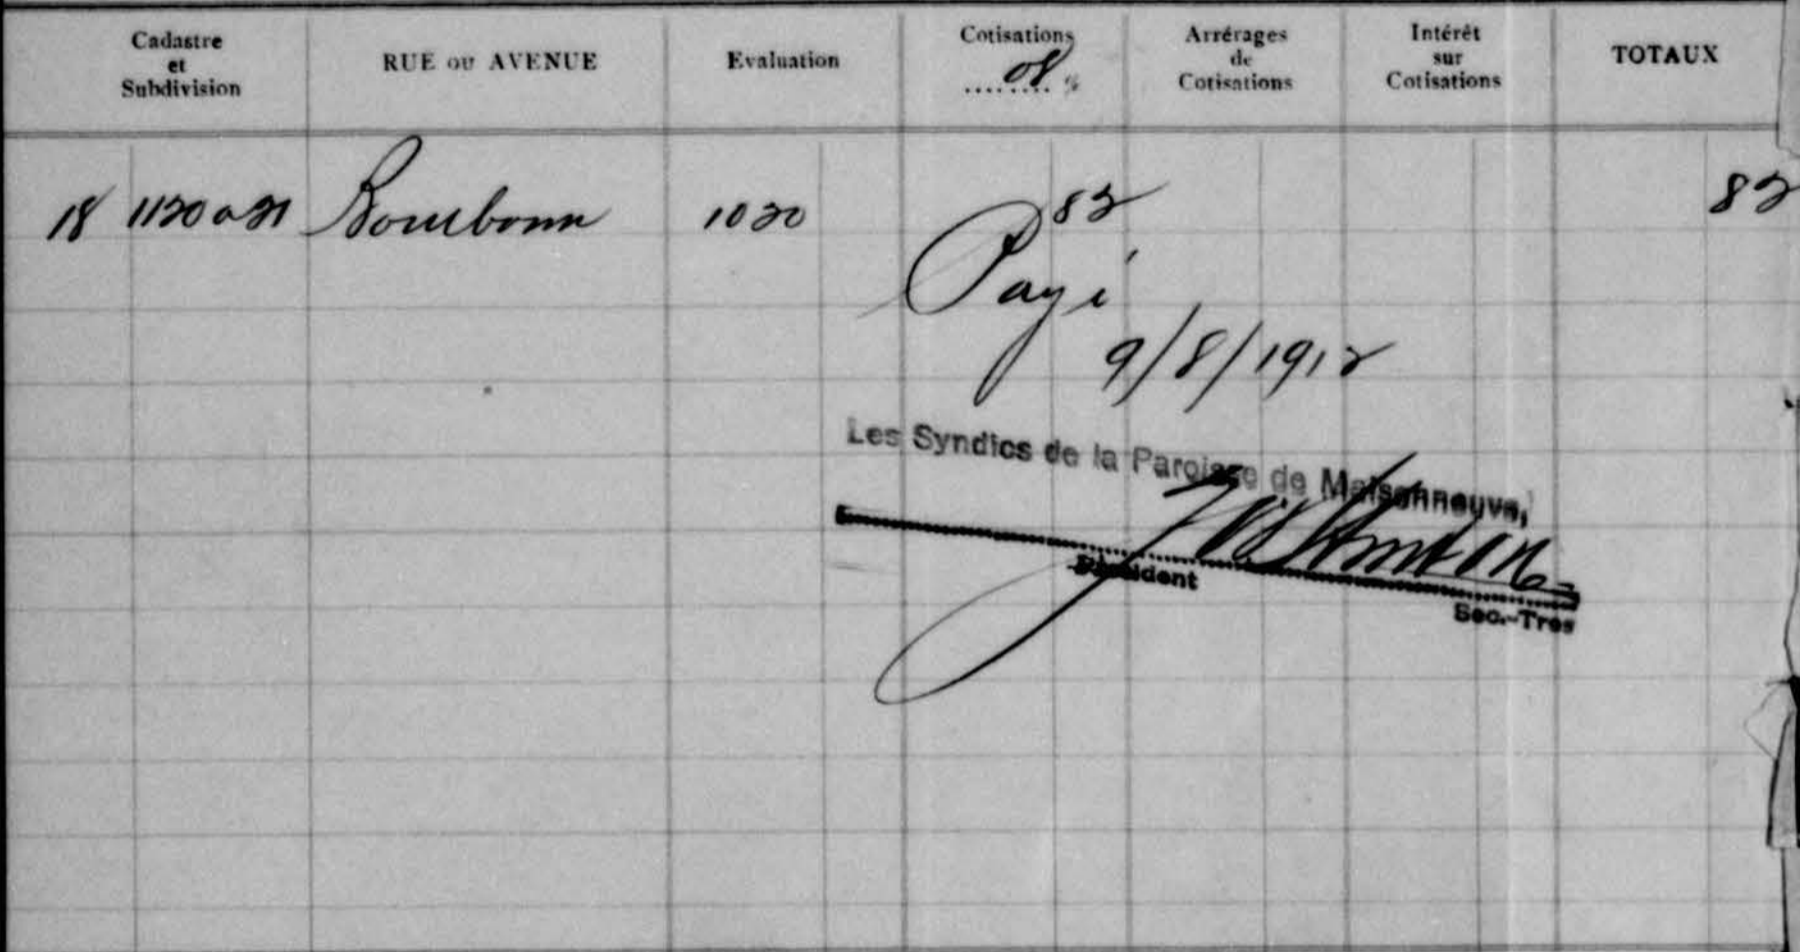 Cadastre et Subdivision
RUE OU AVENUE
Evaluation
Cotisations 08 %
Arrérages de Cotisations
Intérêt sur Cotisations
TOTAUX
18 1120 a 21 Bourbonn 1020 82 82
Payé
9/8/1912
Les Syndics de la Paroisse de Maisonneuve,
Président
Sec.-Tres